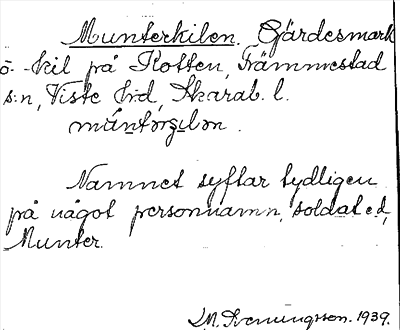 Munterkilen. Gärdesmark
o. kil på Kotten, Främmestad
s:n, Viste hrd, Skarab. l.
Namnet syftar tydligen
på något personnamn, soldat e d,
Munter.
M. Svenungsson. 1939.